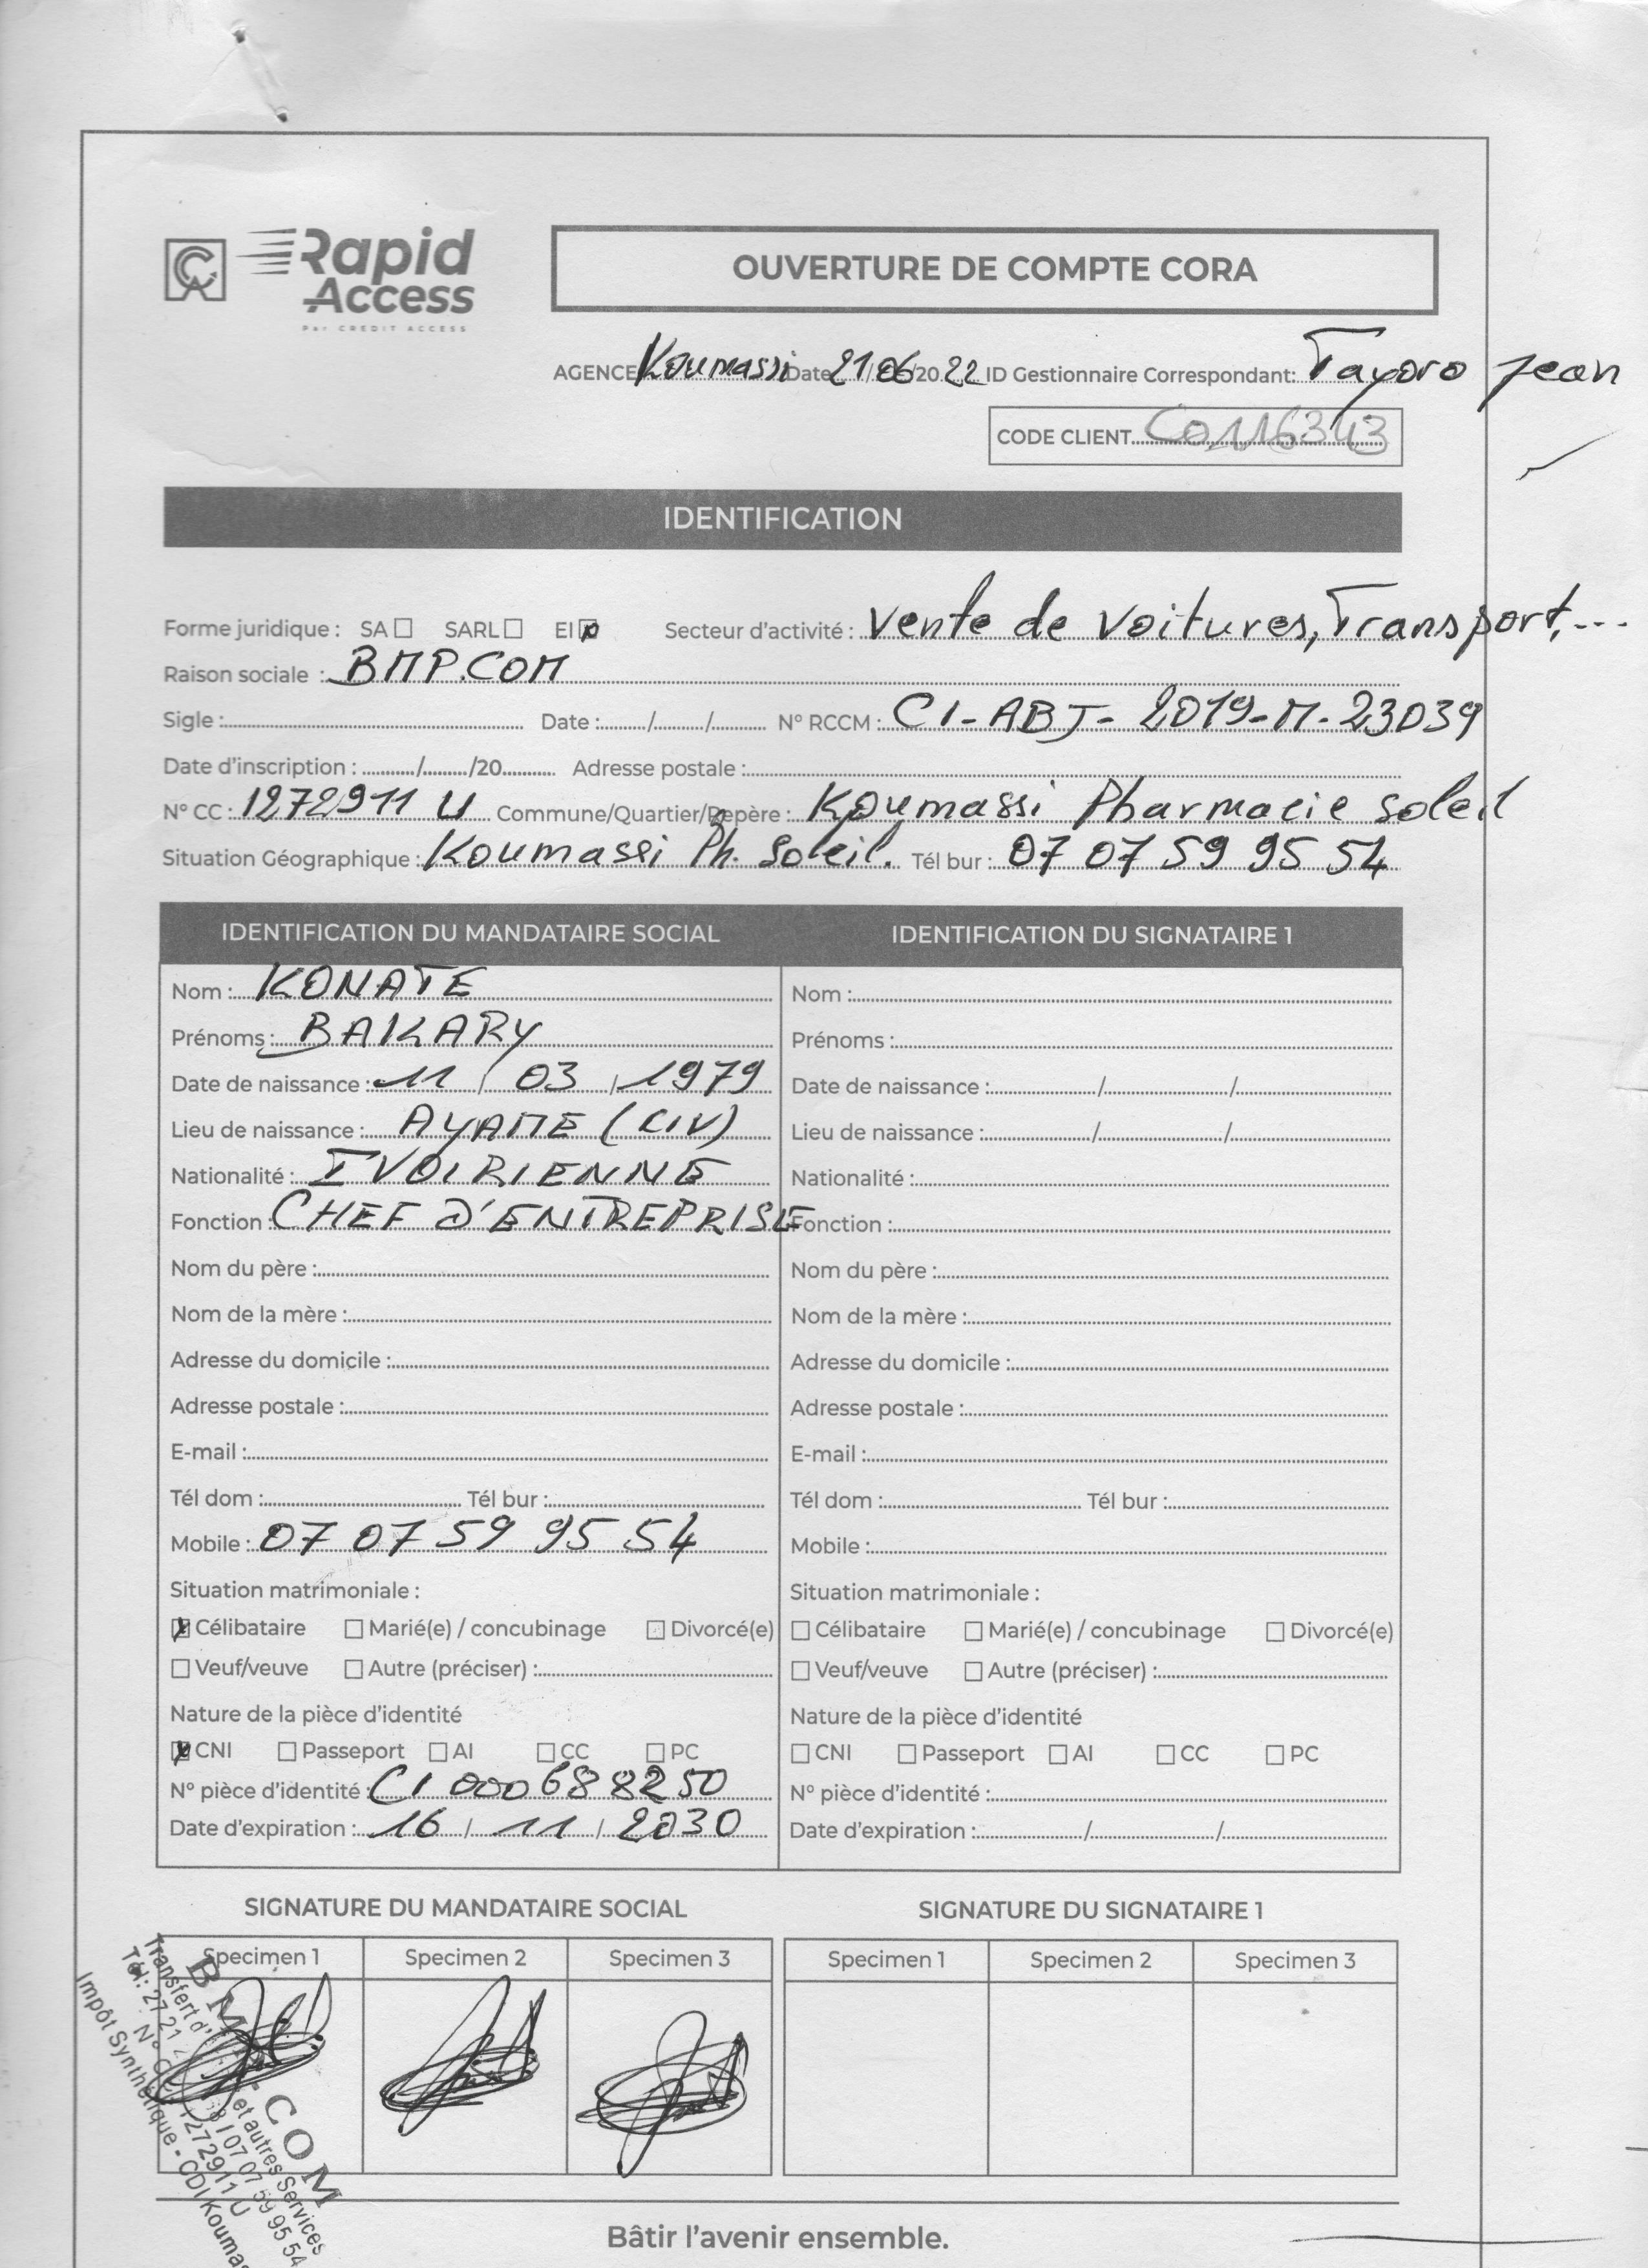 CA Rapid Access
Par CREDIT ACCESS
OUVERTURE DE COMPTE CORA
AGENCE Koumassi Date 21/06/2022 ID Gestionnaire Correspondant: Tayoro Jean
CODE CLIENT C0116343
IDENTIFICATION
Forme juridique : SA ☐ SARL ☐ EI ☒ Secteur d'activité : Vente de Voitures, Transport, ...
Raison sociale : BMP.COM
Sigle : Date : / / N° RCCM : CI-ABJ-2019-M-23039
Date d'inscription : / /20 Adresse postale :
N° CC : 1272911 U Commune/Quartier/Repère : Koumassi Pharmacie Soleil
Situation Géographique : Koumassi Ph. Soleil. Tél bur : 07 07 59 95 54
IDENTIFICATION DU MANDATAIRE SOCIAL
Nom : KONATE
Prénoms : BAKARY
Date de naissance : 11 / 03 / 1979
Lieu de naissance : AYAME (CIV)
Nationalité : IVOIRIENNE
Fonction : CHEF D'ENTREPRISE
Nom du père :
Nom de la mère :
Adresse du domicile :
Adresse postale :
E-mail :
Tél dom : Tél bur :
Mobile : 07 07 59 95 54
Situation matrimoniale :
☒ Célibataire ☐ Marié(e) / concubinage ☐ Divorcé(e)
☐ Veuf/veuve ☐ Autre (préciser) :
Nature de la pièce d'identité
☒ CNI ☐ Passeport ☐ AI ☐ CC ☐ PC
N° pièce d'identité : CI 000688250
Date d'expiration : 16 / 11 / 2030
IDENTIFICATION DU SIGNATAIRE 1
Nom :
Prénoms :
Date de naissance : / /
Lieu de naissance : / /
Nationalité :
Fonction :
Nom du père :
Nom de la mère :
Adresse du domicile :
Adresse postale :
E-mail :
Tél dom : Tél bur :
Mobile :
Situation matrimoniale :
☐ Célibataire ☐ Marié(e) / concubinage ☐ Divorcé(e)
☐ Veuf/veuve ☐ Autre (préciser) :
Nature de la pièce d'identité
☐ CNI ☐ Passeport ☐ AI ☐ CC ☐ PC
N° pièce d'identité :
Date d'expiration : / /
SIGNATURE DU MANDATAIRE SOCIAL
Specimen 1 Specimen 2 Specimen 3
SIGNATURE DU SIGNATAIRE 1
Specimen 1 Specimen 2 Specimen 3
COM
Transfert et autres Services
Tél: 27 21 / 07 07 59 95 54
N° 1272911 U
Impôt Synthétique - CDI
Bâtir l'avenir ensemble.